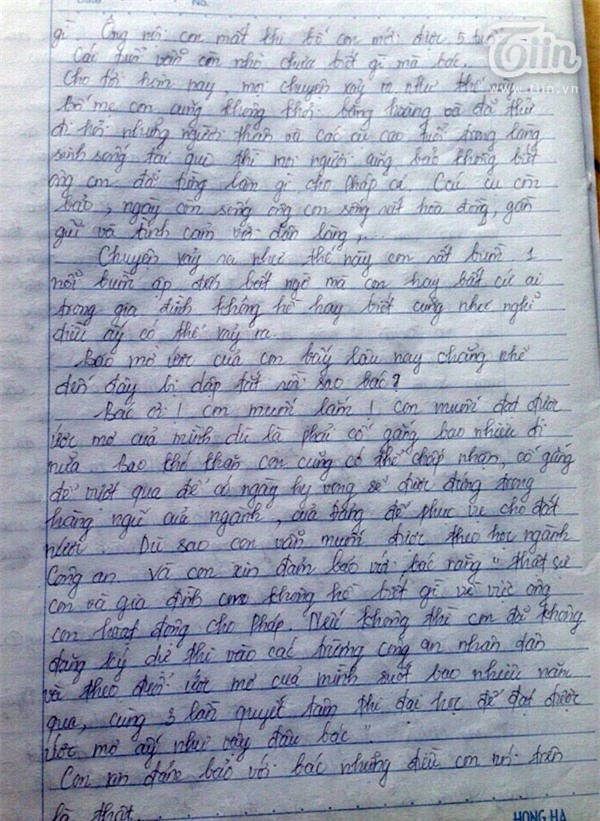 Date
No.
Tiin
tiin.vn
gì. Ông nội con mất khi bố con mới được 5 tuổi
Cái tuổi vẫn còn nhỏ chưa biết gì mà bác.
Cho tới hôm nay, mọi chuyện xảy ra như thế này
bố mẹ con cũng không khỏi bàng hoàng và đã thử
đi hỏi những người thân và các cụ cao tuổi trong làng
sinh sống tại quê thì mọi người cũng bảo không biết
ông con đã từng làm gì cho Pháp cả. Các cụ còn
bảo, ngày còn sống ông con sống rất hòa đồng, gần
gũi và tình cảm với dân làng.
Chuyện xảy ra như thế này con rất buồn. 1
nỗi buồn ập đến bất ngờ mà con hay bất cứ ai
trong gia đình không hề hay biết cũng như nghĩ
điều ấy có thể xảy ra.
Bao mơ ước của con bấy lâu nay chẳng nhẽ
đến đây bị dập tắt rồi sao bác?
Bác ơi! con muốn lắm! con muốn đạt được
ước mơ của mình dù là phải cố gắng bao nhiêu đi
nữa. Bao khó khăn con cũng có thể chấp nhận, cố gắng
để vượt qua để có ngày hy vọng sẽ được đứng trong
hàng ngũ của ngành, của Đảng để phục vụ cho đất
nước. Dù sao con vẫn muốn được theo học ngành
Công an. Và con xin đảm bảo với bác rằng "thật sự
con và gia đình con không hề biết gì về việc ông
con hoạt động cho Pháp. Nếu không thì con đã không
đăng ký dự thi vào các trường công an nhân dân
và theo đuổi ước mơ của mình suốt bao nhiêu năm
qua, cùng 3 lần quyết tâm thi đại học để đạt được
ước mơ ấy như vậy đâu bác"
Con xin đảm bảo với bác những điều con nói trên
là thật.
HONG HA